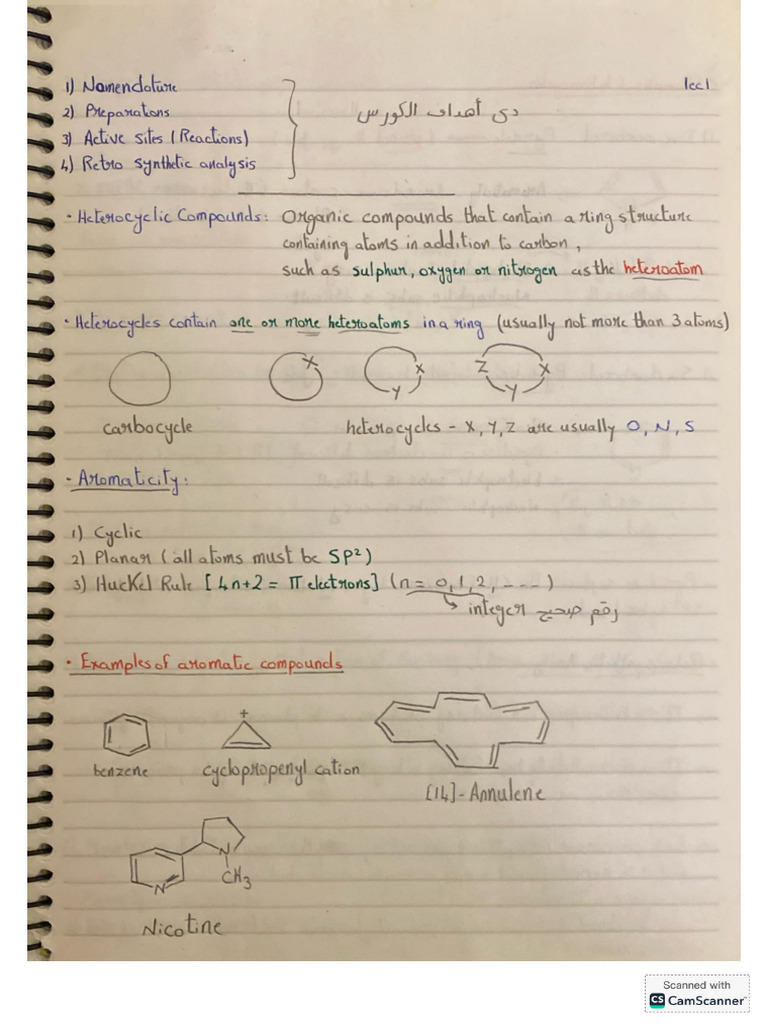 lec1
1) Nomenclature
2) Preparations
3) Active sites (Reactions)
4) Retro synthetic analysis
دى أهداف الكورس
• Heterocyclic Compounds: Organic compounds that contain a ring structure
containing atoms in addition to carbon,
such as sulphur, oxygen or nitrogen as the heteroatom
• Heterocycles contain one or more heteroatoms in a ring (usually not more than 3 atoms)
X
X
Y
Z X
Y
carbocycle heterocycles - X, Y, Z are usually O, N, S
• Aromaticity:
1) Cyclic
2) Planar (all atoms must be SP²)
3) Huckel Rule [4n+2 = π electrons] (n = 0, 1, 2, ----)
integer رقم صحيح
• Examples of aromatic compounds
+
benzene cyclopropenyl cation
[14]-Annulene
N
N
CH3
Nicotine
Scanned with
CS CamScanner